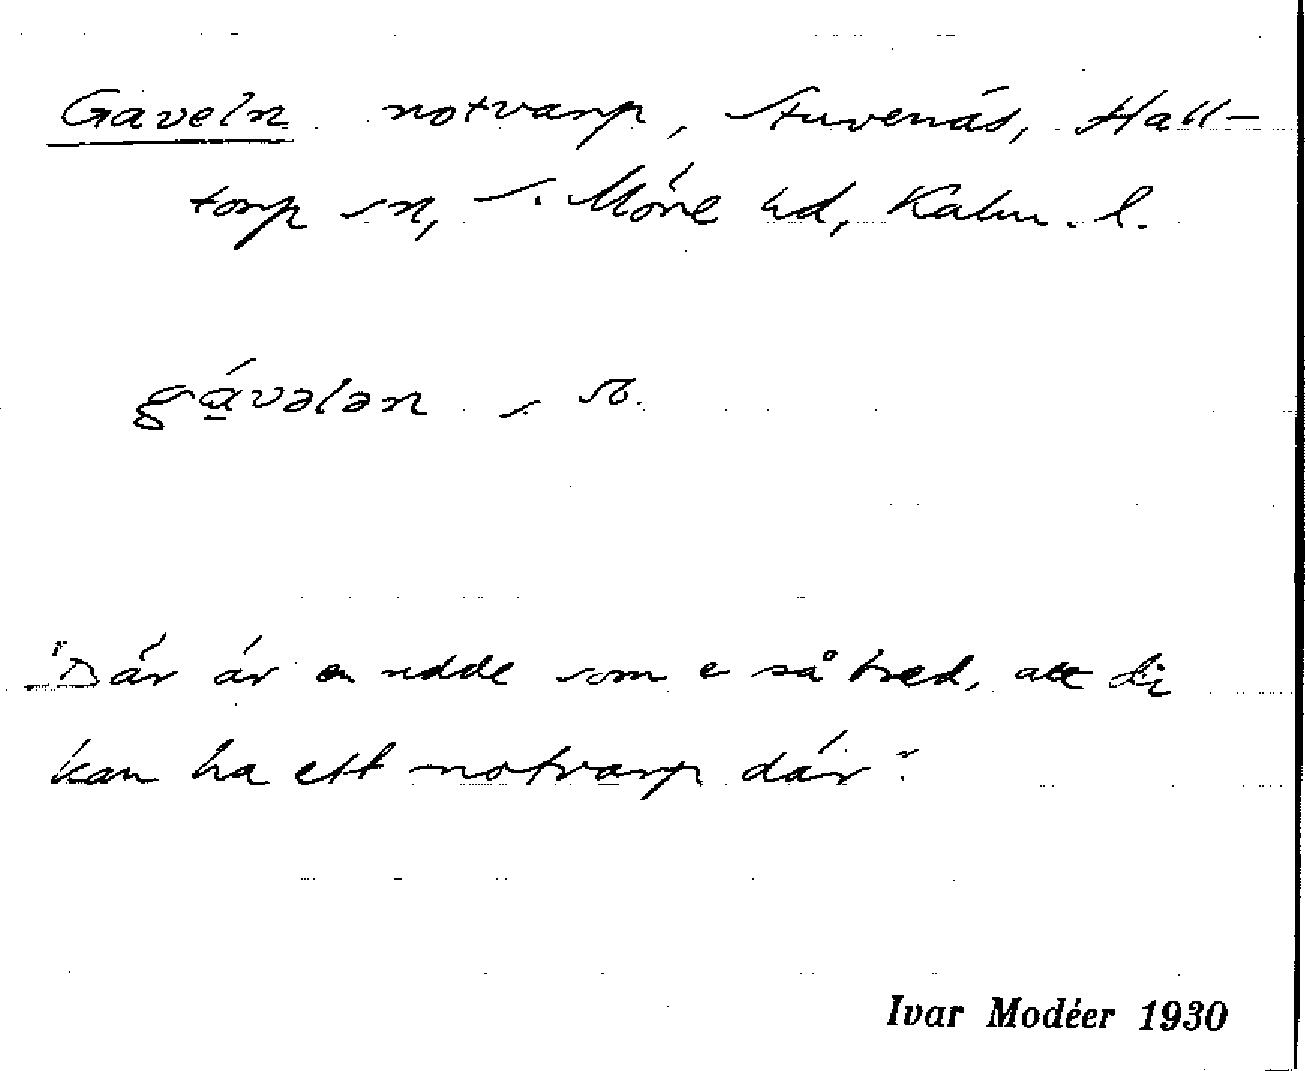 Gaveln notvarp, Stuvenäs, Hall-
torp sn, S. Möre hd, Kalm. l.
gávələn
"Där är en udde som e så bred, att di
kan ha ett notvarp där".
Ivar Modéer 1930